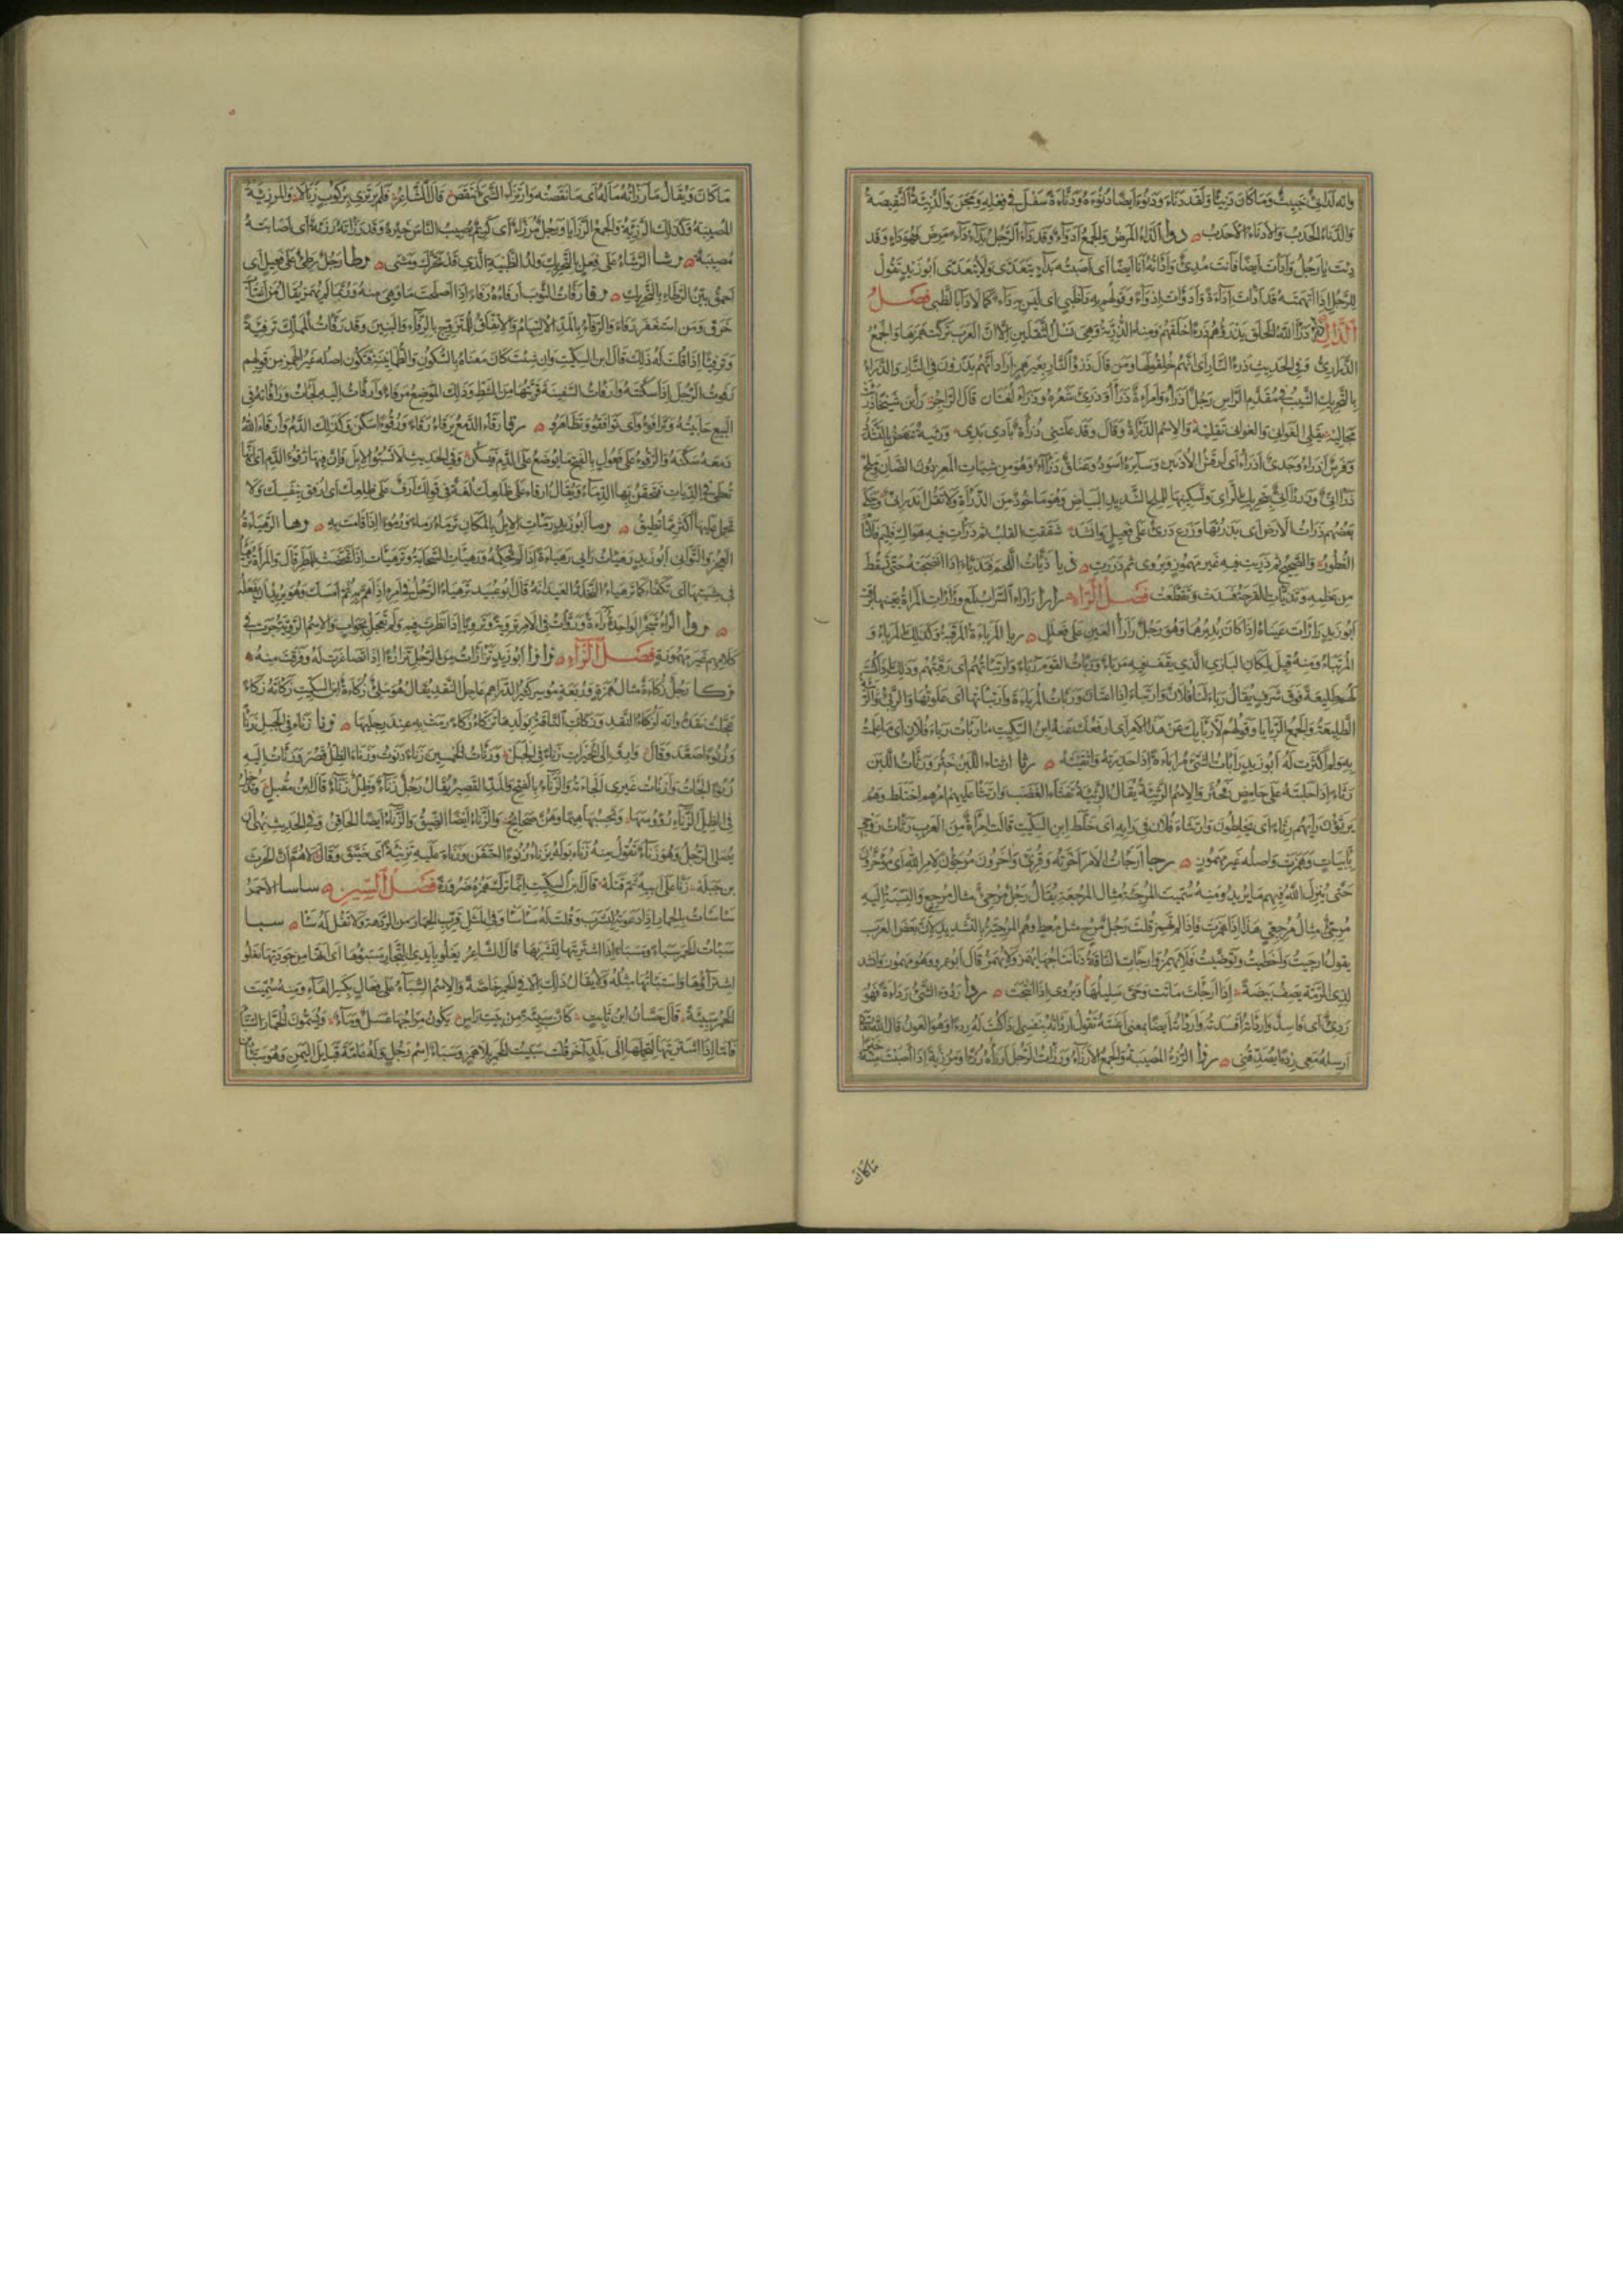 وانه لدانئ خبيث وما كان دنيئا ولقد دناء ودنوء ايضا دنوءة ودناءة سفل في فعله ومجن والدنيئة النقيصة
والدناء الحدب والادناء الاحدب دوا الداء المرض والجمع ادواء وقد داء الرجل يداء داء مرض فهو داء وقد
دئت يا رجل وادأت ايضا فانت مدئ وادأته انا ايضا اى اصبته بداء يتعدى ولا يتعدى ابو زيد تقول
للرجل اذا اتهمته قد ادأت اداءة وادوأت ادواء وقولهم به داء ظبي اى ليس به داء كما لا داء بالظبي فصل
الذال ذرأ الله الخلق يذرؤهم ذرءا خلقهم ومنه الذرية وهى نسل الثقلين الا ان العرب تركت همزها والجمع
الذراري وفى الحديث ذرء النار اى انهم خلقوا لها ومن قال ذرو النار بغير همز اراد انهم يذرون فى النار والذراء
بالتحريك الشيب فى مقدم الراس رجل اذراء وامراة ذرآء وذرئ شعره وذراء لغتان قال الراجز رأين شيخا ذرئت
مجاليه يقلى الغواني والغواني تقليه والاسم الذرأة وقال وقد علتنى ذرأة بادي بدي ورثية تنهض بالتشدد
وفرس اذراء وجدى اذراء اى ارقش الاذنين وسايره اسود وعناق ذرآء وهو من شيات المعز دون الضان وملح
ذرآنى وذرآنى بتحريك الراى وتسكينها للملح الشديد البياض وهو ماخوذ من الذرأة ولا تقل انذرانى وحكى
بعضهم ذرات الارض اى بذرتها وزرع ذرئ على فعيل وانشد شققت القلب ثم ذرات فيه هواك فليم فالتام
الفطور والصحيح ثم ذريت فيه غير مهموز ويروى ثم ذررت ذيا ذيأت اللحم فتذياء اذا انضجته حتى يسقط
من عظمه وتذيات القرحة فسدت وتقطعت فصل الراء رارا راراء السراب لمع ورارات المراة بعينها برقت
ابو زيد رارات عيناه اذا كان يديرهما وهو رجل رارا العين على فعلل ربا المرباءة المرقبة وكذلك المرباء و
المرتباء ومنه قيل لمكان البازي الذي يقف فيه مرباء وربات القوم رباء وارتباتهم اى رقبتهم وذلك اذا كنت
لهم طليعة فوق شرف يقال رباء لنا فلان وارتباء اذا اعتان وربات المرباءة وارتباتها اى علوتها والربئ والربيئة
الطليعة والجمع الربايا وقولهم لاربا بك عن هذا الامر اى ارفعك عنه ابن السكيت ما ربات رباء فلان اى ما علمت
به ولم اكترث له ابو زيد رابات الشئ مراباءة اذا حذرته واتقيته رثا ارتثاء اللبن خثر ورثأت اللبن
رثاء اذا حلبته على حامض فخثر والاسم الرثيئة يقال الرثيئة تفثاء الغضب وارتثا عليهم امرهم اختلط وهم
يرتثؤن رايهم رثاء اى يخلطون وارتثاء فلان فى رايه اى خلط ابن السكيت قالت امراة من العرب رثات زوجى
بابيات وهمزت واصله غير مهموز رجا ارجات الامر اخرته وقرئ واخرون مرجؤن لامر الله اى مؤخرون
حتى ينزل الله فيهم ما يريد ومنه سميت المرجئة مثال المرجعة يقال رجل مرجئ مثال مرجع والنسبة اليه
مرجئى مثال مرجعي هذا اذا همزت فاذا لم تهمز قلت رجل مرج مثل معط وهم المرجية بالتشديد لان بعض العرب
يقول ارجيت واخطيت وتوضيت فلا يهمز وارجات الناقة دنا نتاجها يهمز ولا يهمز قال ابو عمرو وهو مهموز وانشد
لذى الرمة يصف بيضة اذا ارجات ماتت وحى سليلها ويروى اذا نتجت ردا ردؤ الشئ رداءة فهو
ردئ اى فاسد واردأته افسدته واردأته ايضا بمعنى اعنته تقول اردأته بنفسى اذا كنت له ردءا وهو العون قال الله تعالى
ارسله معى ردءا يصدقنى رزا الرزء المصيبة والجمع الارزاء ورزات الرجل ارزأه رزءا ومرزئة اذا اصبت منه خيرا
ماكان
ما كان ويقال ما رزأته ماله اى ما نقصته وارتزاء الشئ انتقص قال الشاعر فلم يرتزئ بركوب زبالا والمرزئة
المصيبة وكذلك الرزية والجمع الرزايا ورجل مرزاء اى كريم يصيب الناس خيره وقد رزاته رزيئة اى اصابته
مصيبة رشا الرشاء على فعل بالتحريك ولد الظبية الذي قد تحرك ومشى رطا رجل رطئ على فعيل اى
احمق بين الرطاء بالتحريك رفا رفات الثوب ارفاءه رفاء اذا اصلحت ما وهى منه وربما لم يهمز يقال من اغتاب
خرق ومن استغفر رفاء والرفاء بالمد الالتيام والاتفاق يقال للمتزوج بالرفاء والبنين وقد رفات المملك ترفئة
وترفيئا اذا قلت له ذلك قال ابن السكيت وان شئت كان معناه بالسكون والطمانينة فيكون اصله غير الهمز من قولهم
رفوت الرجل اذا سكنته وارفات السفينة قربتها من الشط وذلك الموضع مرفاء وارفات اليه لجات ورافانه فى
البيع حابيته وترافؤا اى توافقوا وتظاهروا رقا رقاء الدمع يرقاء رقاء ورقوءا سكن وكذلك الدم وارقاء الله
دمعه سكنه والرقوء على فعول بالفتح ما يوضع على الدم فيسكن وفى الحديث لا تسبوا الابل فان فيها رقوء الدم اى انها
تعطى فى الديات فتحقن بها الدماء ويقال ارقاء على ظلعك لغة فى قولك ارق على ظلعك اى ارفق بنفسك ولا
تحمل عليها اكثر مما تطيق رما ابو زيد رمات الابل بالمكان ترماء رماء ورموءا اذا قامت به رها الرهياءة
العجز والتوانى ابو زيد رهيات رايى رهياءة اذا لم تحكمه ورهيات السحابة وترهيات اذا تمخضت للمطر قال والمراة ترهيا
فى مشيتها اى تكفأ كما ترهياء النخلة العيدانة قال ابو عبيد ترهياء الرجل فى امره اذا هم به ثم امسك وهو يريد ان يفعله
روا الراء شجر الواحدة راءة وروات فى الامر تروئة وترويئا اذا نظرت فيه ولم تعجل بجواب والاسم الروية جرت فى
كلامهم غير مهموزة فصل الزاء زوازا ابو زيد تزازات من الرجل تزازؤا اذا تصاغرت له وفرقت منه
زكا رجل زكاءة مثال همزة وقد بعته موسر كثير الدراهم عاجل النقد يقال هو ملئ زكاءة ابن السكيت زكاته زكاء
عجلت نقده وانه لزكاء النقد وزكات الناقة بولدها تزكاء زكاء رمت به عند رجليها زنا زناء فى الجبل زنأ
وزنوءا صعد وقال وارق الى الخيرات زناء فى الجبل وزنات للخمسين زناء دنوت وزناء الظل قصر وزنات اليه
زنوءا لجات وازنات غيرى الجاءته والزناء بالفتح والمد القصير يقال رجل زناء وظل زناء قال ابن مقبل وتدخل
فى الظل الزناء رؤوسها وتحسبها هيما وهن صحايح والزناء ايضا الضيق والزناء ايضا الحاقن وفى الحديث نهى ان
يصلى الرجل وهو زناء تقول منه زناء بوله يزناء زنوءا احتقن وزناء عليه تزنئة اى ضيق وقال لاهم ان الحرث
بن جبلة زنا على ابيه ثم قتله قال ابن السكيت انما ترك همزه ضرورة فصل السين ساسا الاحمر
ساسات بالحمار اذا دعوته ليشرب وقلت له ساسا وفى المثل قرب الحمار من الردهة ولا تقل له سا سبا
سبات الخمر سباء ومسباء اذا اشتريتها لتشربها قال الشاعر يغلو بايدى التجار مسبؤها اى انها من جودتها يغلو
اشتراؤها واستباتها مثله ولا يقال ذلك الا فى الخمر خاصة والاسم السباء على فعال بكسر الفاء ومنه سميت
الخمر سبيئة قال حسان ابن ثابت كان سبيئة من بيت راس يكون مزاجها عسل وماء ويسمون الخمار السباء
فاما اذا اشتريتها لتحملها الى بلد آخر قلت سبيت الخمر بلا همز وسباء اسم رجل ولد عامة قبايل اليمن وهو سبأ بن